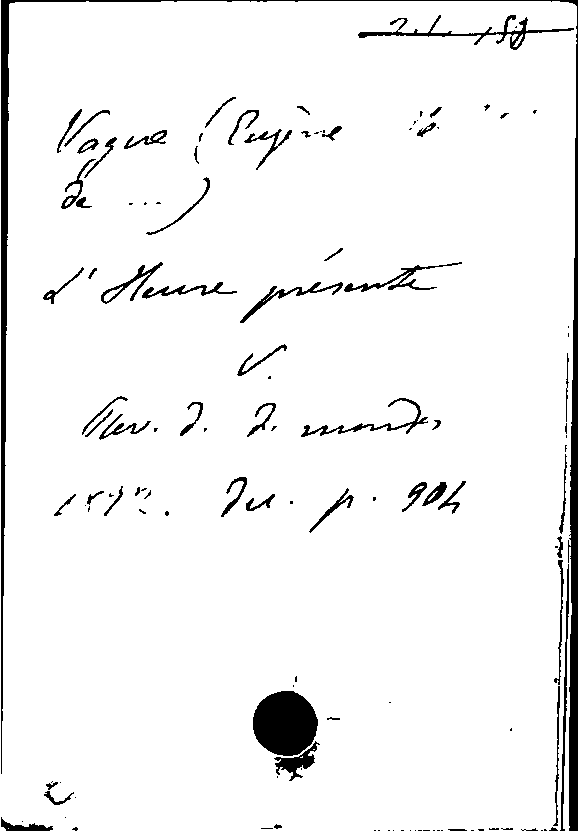 Vogüé (Eugène
de ...)
L'Heure présente
V.
Rev. d. d. mondes
1892. Déc. p. 904